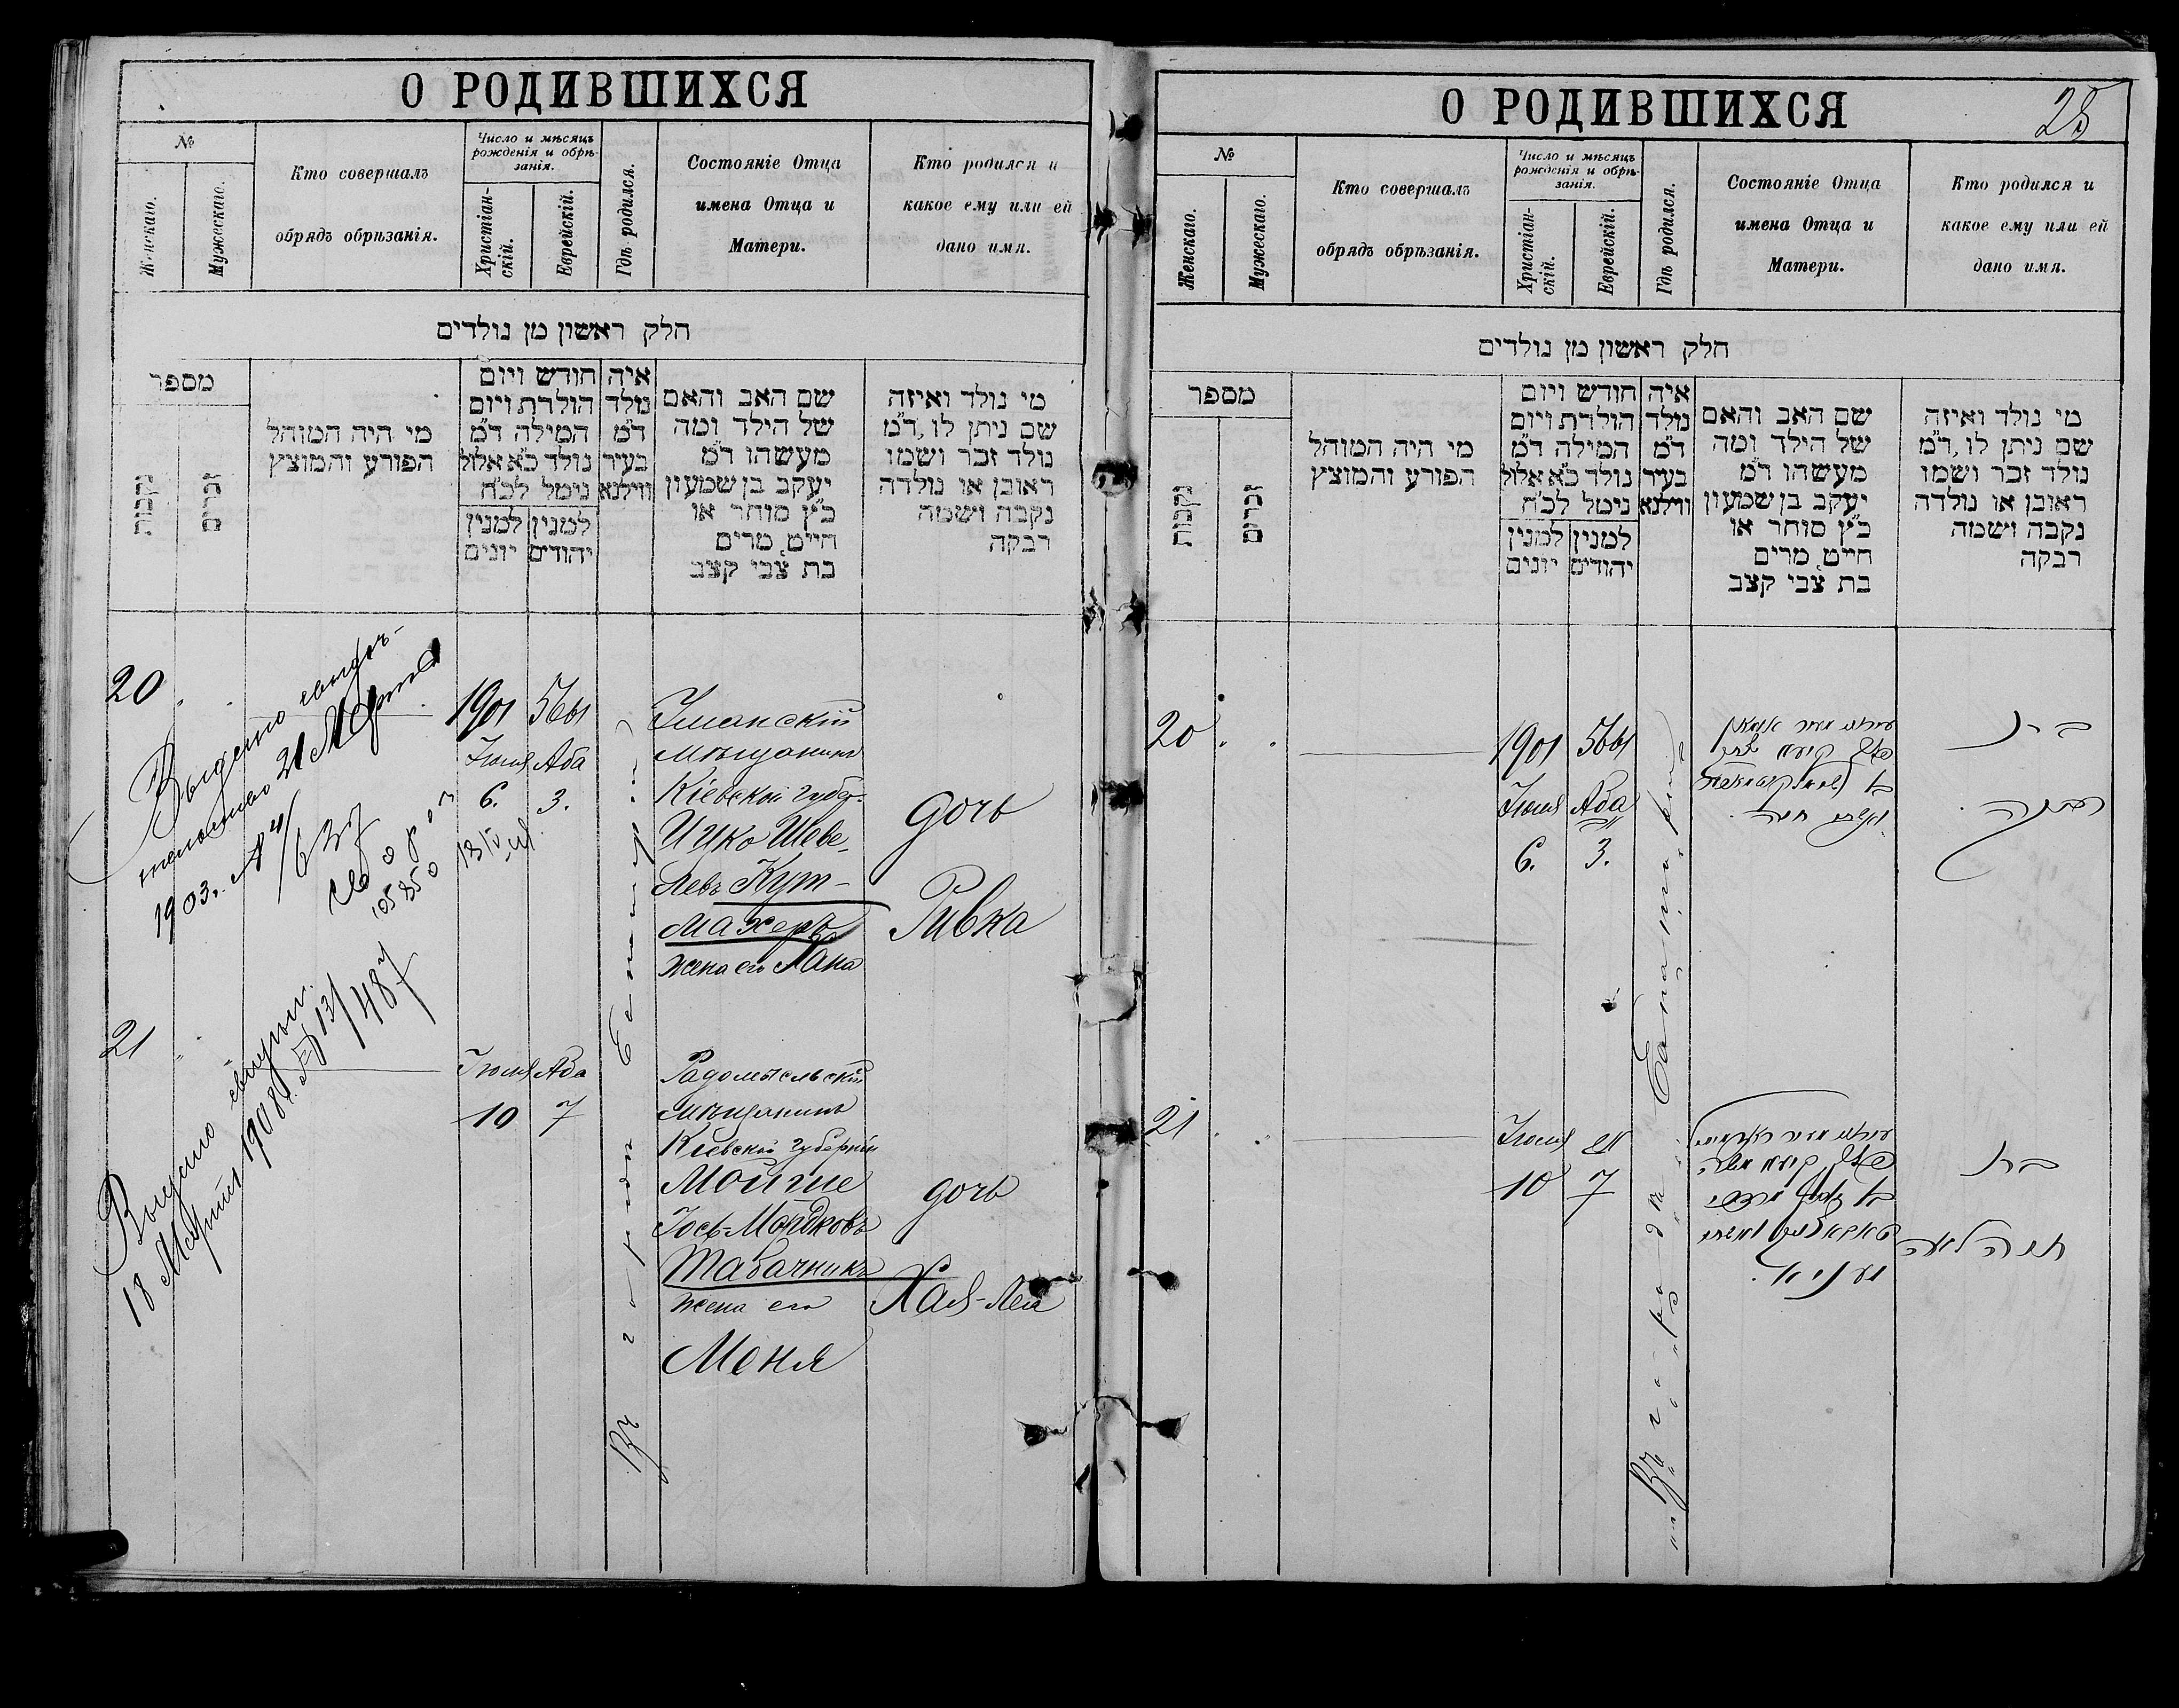 О РОДИВШИХСЯ
№
Женскаго.
Мужескаго.
Кто совершалъ
обрядъ обрѣзанія.
Число и мѣсяцъ
рожденія и обрѣ-
занія.
Христіан-
скій.
Еврейскій.
Гдѣ родился.
Состояніе Отца
имена Отца и
Матери.
Кто родился и
какое ему или ей
дано имя.
חלק ראשון מן נולדים
מספר
נקבות
זכרים
מי היה המוהל
הפורע והמוצץ
חודש ויום
הולדת ויום
המילה ד״מ
נולד כ״א אלול
נימל לכ״ח
למנין יונים
למנין יהודים
איה
נולד
ד״מ
בעיר
ווילנא
שם האב והאם
של הילד ומה
מעשהו ד״מ
יעקב בן שמעון
כ״ץ סוחר או
חייט, מרים
בת צבי קצב
מי נולד ואיזה
שם ניתן לו, ד״מ
נולד זכר ושמו
ראובן או נולדה
נקבה ושמה
רבקה
20
Выдано свидѣ-
тельство 21 Марта
1903 г. №
637
1901 5661
Іюля Ава
6. 3.
Уманскій
мѣщанинъ
Кіевской губер.
Ицко Шеве-
левъ Кут-
махеръ
жена его Хана
дочь
Ривка
21
Выдано
18 Марта 1908 г. № 13/487
Іюля Ава
10 7
Радомысльскій
мѣщанинъ
Кіевской губерніи
Мойше
Іось-Мордковъ
Табачникъ
жена его
Меня
дочь
Хая-Лея
Въ городѣ
О РОДИВШИХСЯ
25
№
Женскаго.
Мужескаго.
Кто совершалъ
обрядъ обрѣзанія.
Число и мѣсяцъ
рожденія и обрѣ-
занія.
Христіан-
скій.
Еврейскій.
Гдѣ родился.
Состояніе Отца
имена Отца и
Матери.
Кто родился и
какое ему или ей
дано имя.
חלק ראשון מן נולדים
מספר
נקבות
זכרים
מי היה המוהל
הפורע והמוצץ
חודש ויום
הולדת ויום
המילה ד״מ
נולד כ״א אלול
נימל לכ״ח
למנין יונים
למנין יהודים
איה
נולד
ד״מ
בעיר
ווילנא
שם האב והאם
של הילד ומה
מעשהו ד״מ
יעקב בן שמעון
כ״ץ סוחר או
חייט, מרים
בת צבי קצב
מי נולד ואיזה
שם ניתן לו, ד״מ
נולד זכר ושמו
ראובן או נולדה
נקבה ושמה
רבקה
20
1901 5661
Іюля Ава
6. 3.
בת
רבקה
21
Іюля אב
10 7
בת
חיה לאה
Въ городѣ